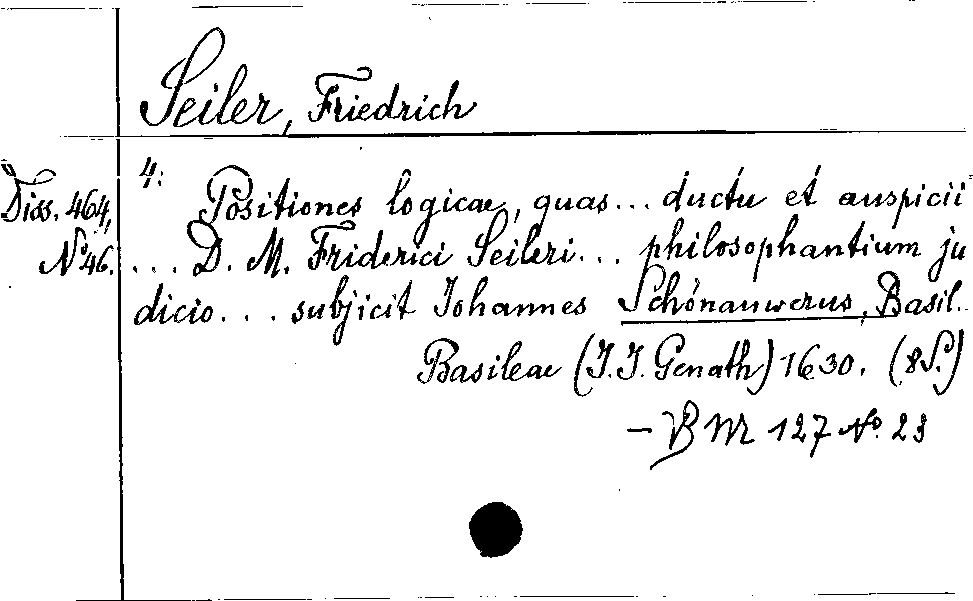 Seiler, Friedrich
4:
Diss. 464, Positiones logicae, quas... ductu et auspicii
No 46. ... D. M. Friderici Seileri... philosophantium ju
dicio... subjicit Johannes Schönauwerus, Basil..
Basileae (J. J. Genath) 1630. (8 S.)
— B VII 127 No. 23